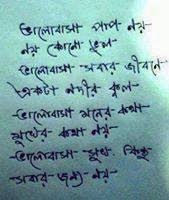 ভালোবাসা পাপ নয়
নয় কোনো ভুল-
ভালোবাসা সবার জীবনে
একটা নদীর কুল-
-ভালোবাসা মনের কথা
মুখের কথা নয়-
-ভালোবাসা সুখ. কিন্তু
-সবার জন্য নয়-